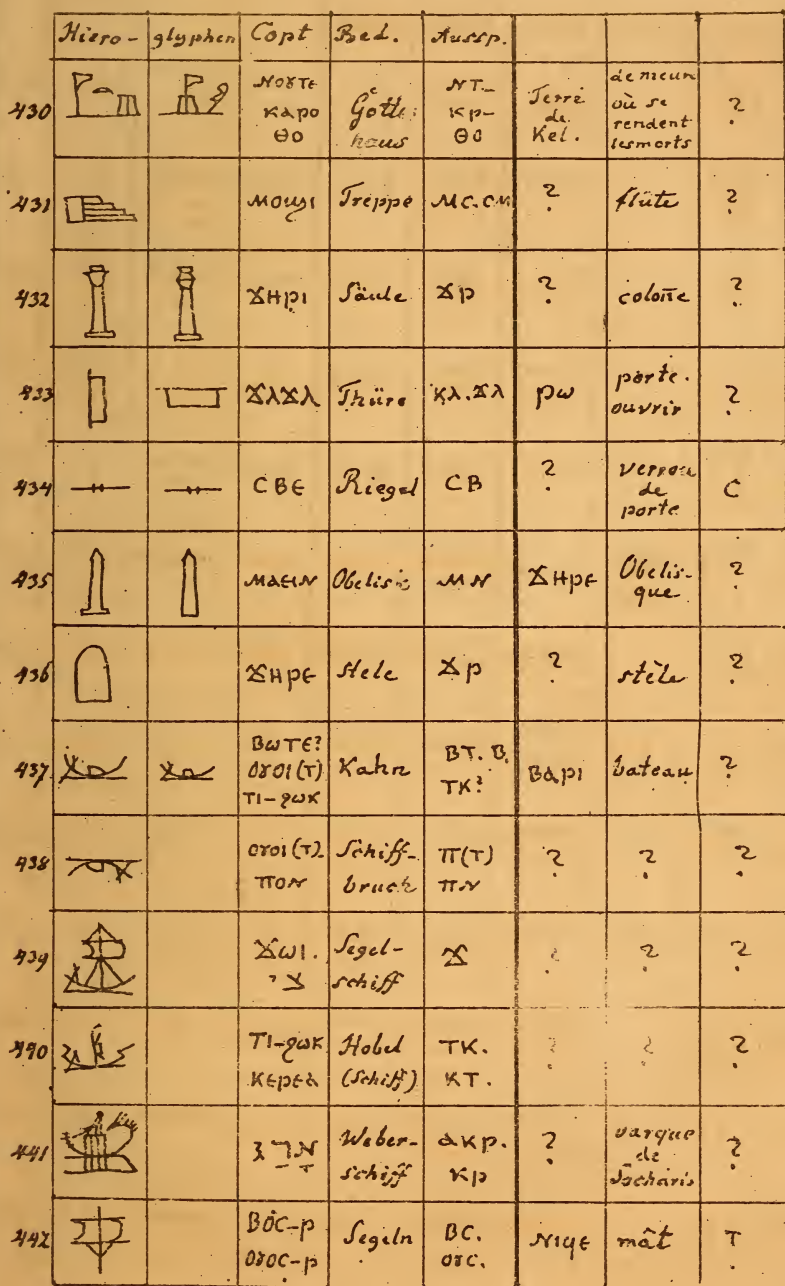 Hiero- glyphen Copt Bed. Aussp.
430 ⲚⲞⲨⲦⲈ ⲔⲀⲢⲞ ⲐⲞ Götter haus ⲚⲦ- ⲔⲢ- ⲐⲞ Terre de Kel. demeur où se rendent les morts ?
431 ⲘⲞⲨϢⲒ Treppe ⲘⲤ.ⲤⲘ ? flûte ?
432 ϪⲎⲢⲒ Säule ϪⲢ ? colon̄e ?
433 ϪⲖϪⲖ Thüre ⲔⲖ.ϪⲖ ⲢⲰ porte. ouvrir ?
434 ⲤⲂⲈ Riegel ⲤⲂ ? verrou de porte Ⲥ
435 ⲘⲀⲈⲒⲚ Obelisk ⲘⲚ ϪⲎⲢⲈ Obelisque ?
436 ϪⲎⲢⲈ Stele ϪⲢ ? stèle ?
437 ⲂⲰⲦⲈ? ⲞⲨⲞⲒ(Ⲧ) ⲦⲒ-ϨⲰⲔ Kahn ⲂⲦ. Ⲃ. ⲦⲔ? ⲂⲀⲢⲒ bateau ?
438 ⲞⲨⲞⲒ(Ⲧ)- ⲠⲞⲚ Schiff- bruch Ⲡ(Ⲧ) ⲠⲚ ? ? ?
439 ϪⲰⲒ. צי Segel- schiff Ϫ ? ? ?
440 ⲦⲒ-ϨⲰⲔ Hobel (Schiff) ⲦⲔ. ⲔⲦ. ? ? ?
441 ארג Weber- schiff ⲀⲔⲢ. ⲔⲢ ? barque de Socharis ?
442 ⲂⲞⲤ-Ⲣ ⲞⲨⲞⲤ-Ⲣ Segeln ⲂⲤ. ⲞⲨⲤ. ⲚⲒϤⲈ mât Ⲧ